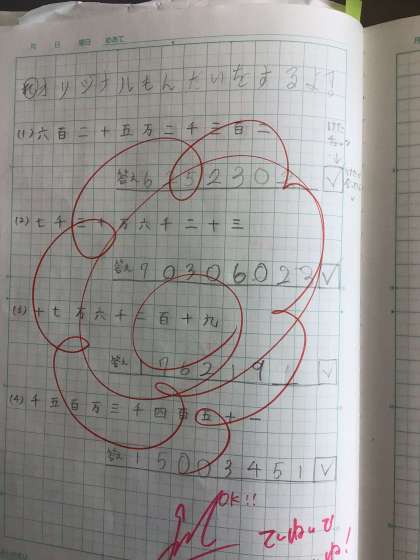 月 日 曜日 めあて
れオリジナルもんだいをするよ！
(1)六百二十五万二千三百二
けたチェック
↓
答え 6 2 5 2 3 0 2 ✓
(2)七千三十万六千二十三
答え 7 0 3 0 6 0 2 3 ✓
(3)十七万六千二百十九
答え 1 7 6 2 1 9 1 ✓
(4)千五百万三千四百五十一
答え 1 5 0 0 3 4 5 1 ✓
OK!!
ていねいで
ね！